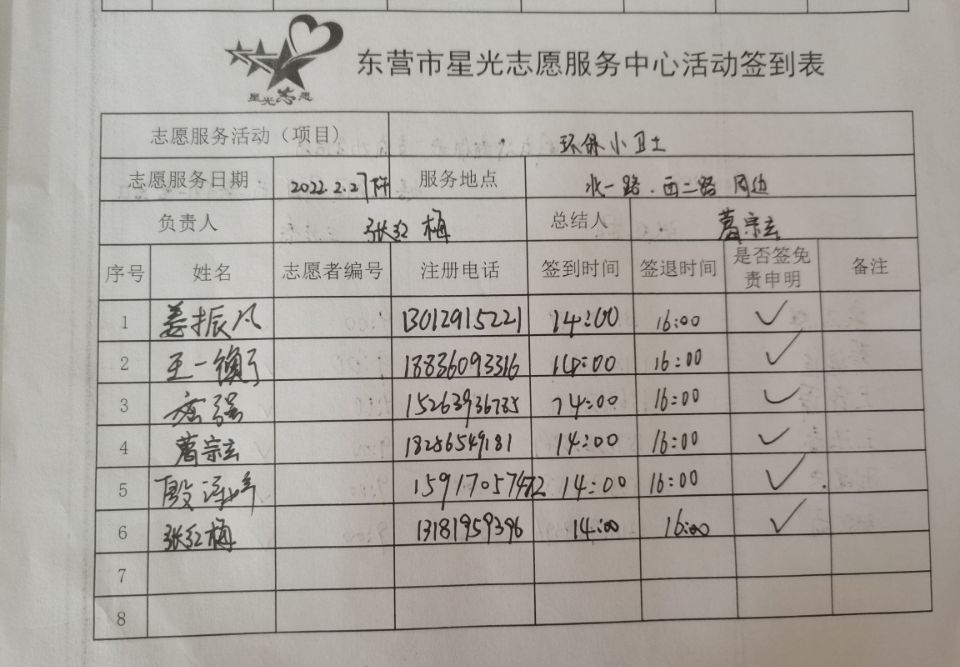 星光志愿
东营市星光志愿服务中心活动签到表
志愿服务活动（项目） 环保小卫士
志愿服务日期 2022.2.27下午 服务地点 水一路.西二路 周边
负责人 张红梅 总结人 葛宗云
序号 姓名 志愿者编号 注册电话 签到时间 签退时间 是否签免责申明 备注
1 姜振凡 13012915221 14:00 16:00 ✓
2 王一 18836093316 14:00 16:00 ✓
3 强 14:00 16:00 ✓
4 葛宗云 18286549181 14:00 16:00 ✓
5 殷 14:00 16:00 ✓
6 张红梅 13181959396 14:00 16:00 ✓
7
8